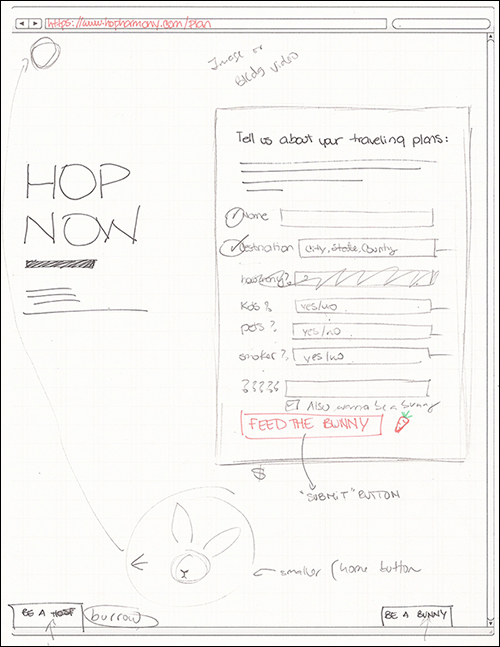 https://www.hopharmony.com/plan
Image or
Bkdg video
Tell us about your traveling plans:
HOP
NOW
Name
Destination City, State, County
how many?
Kids? yes/no
pets? yes/no
smoker? yes/no
?????
Also wanna be a bunny
FEED THE BUNNY
$
"SUBMIT" BUTTON
smaller (home button
BE A HOST
burrow
BE A BUNNY